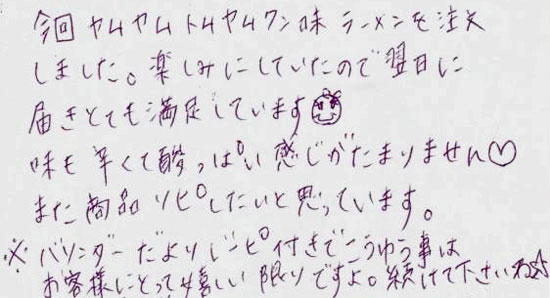 今回 ヤムヤムトムヤムクン味 ラーメンを注文
しました。楽しみにしていたので翌日に
届きとても満足しています
味も辛くて酸っぱい感じがたまりません♡
また商品リピしたいと思っています。
※バリンダーだよりレシピ付きでこうゆう事は
お客様にとって嬉しい限りですよ。続けて下さいね☆